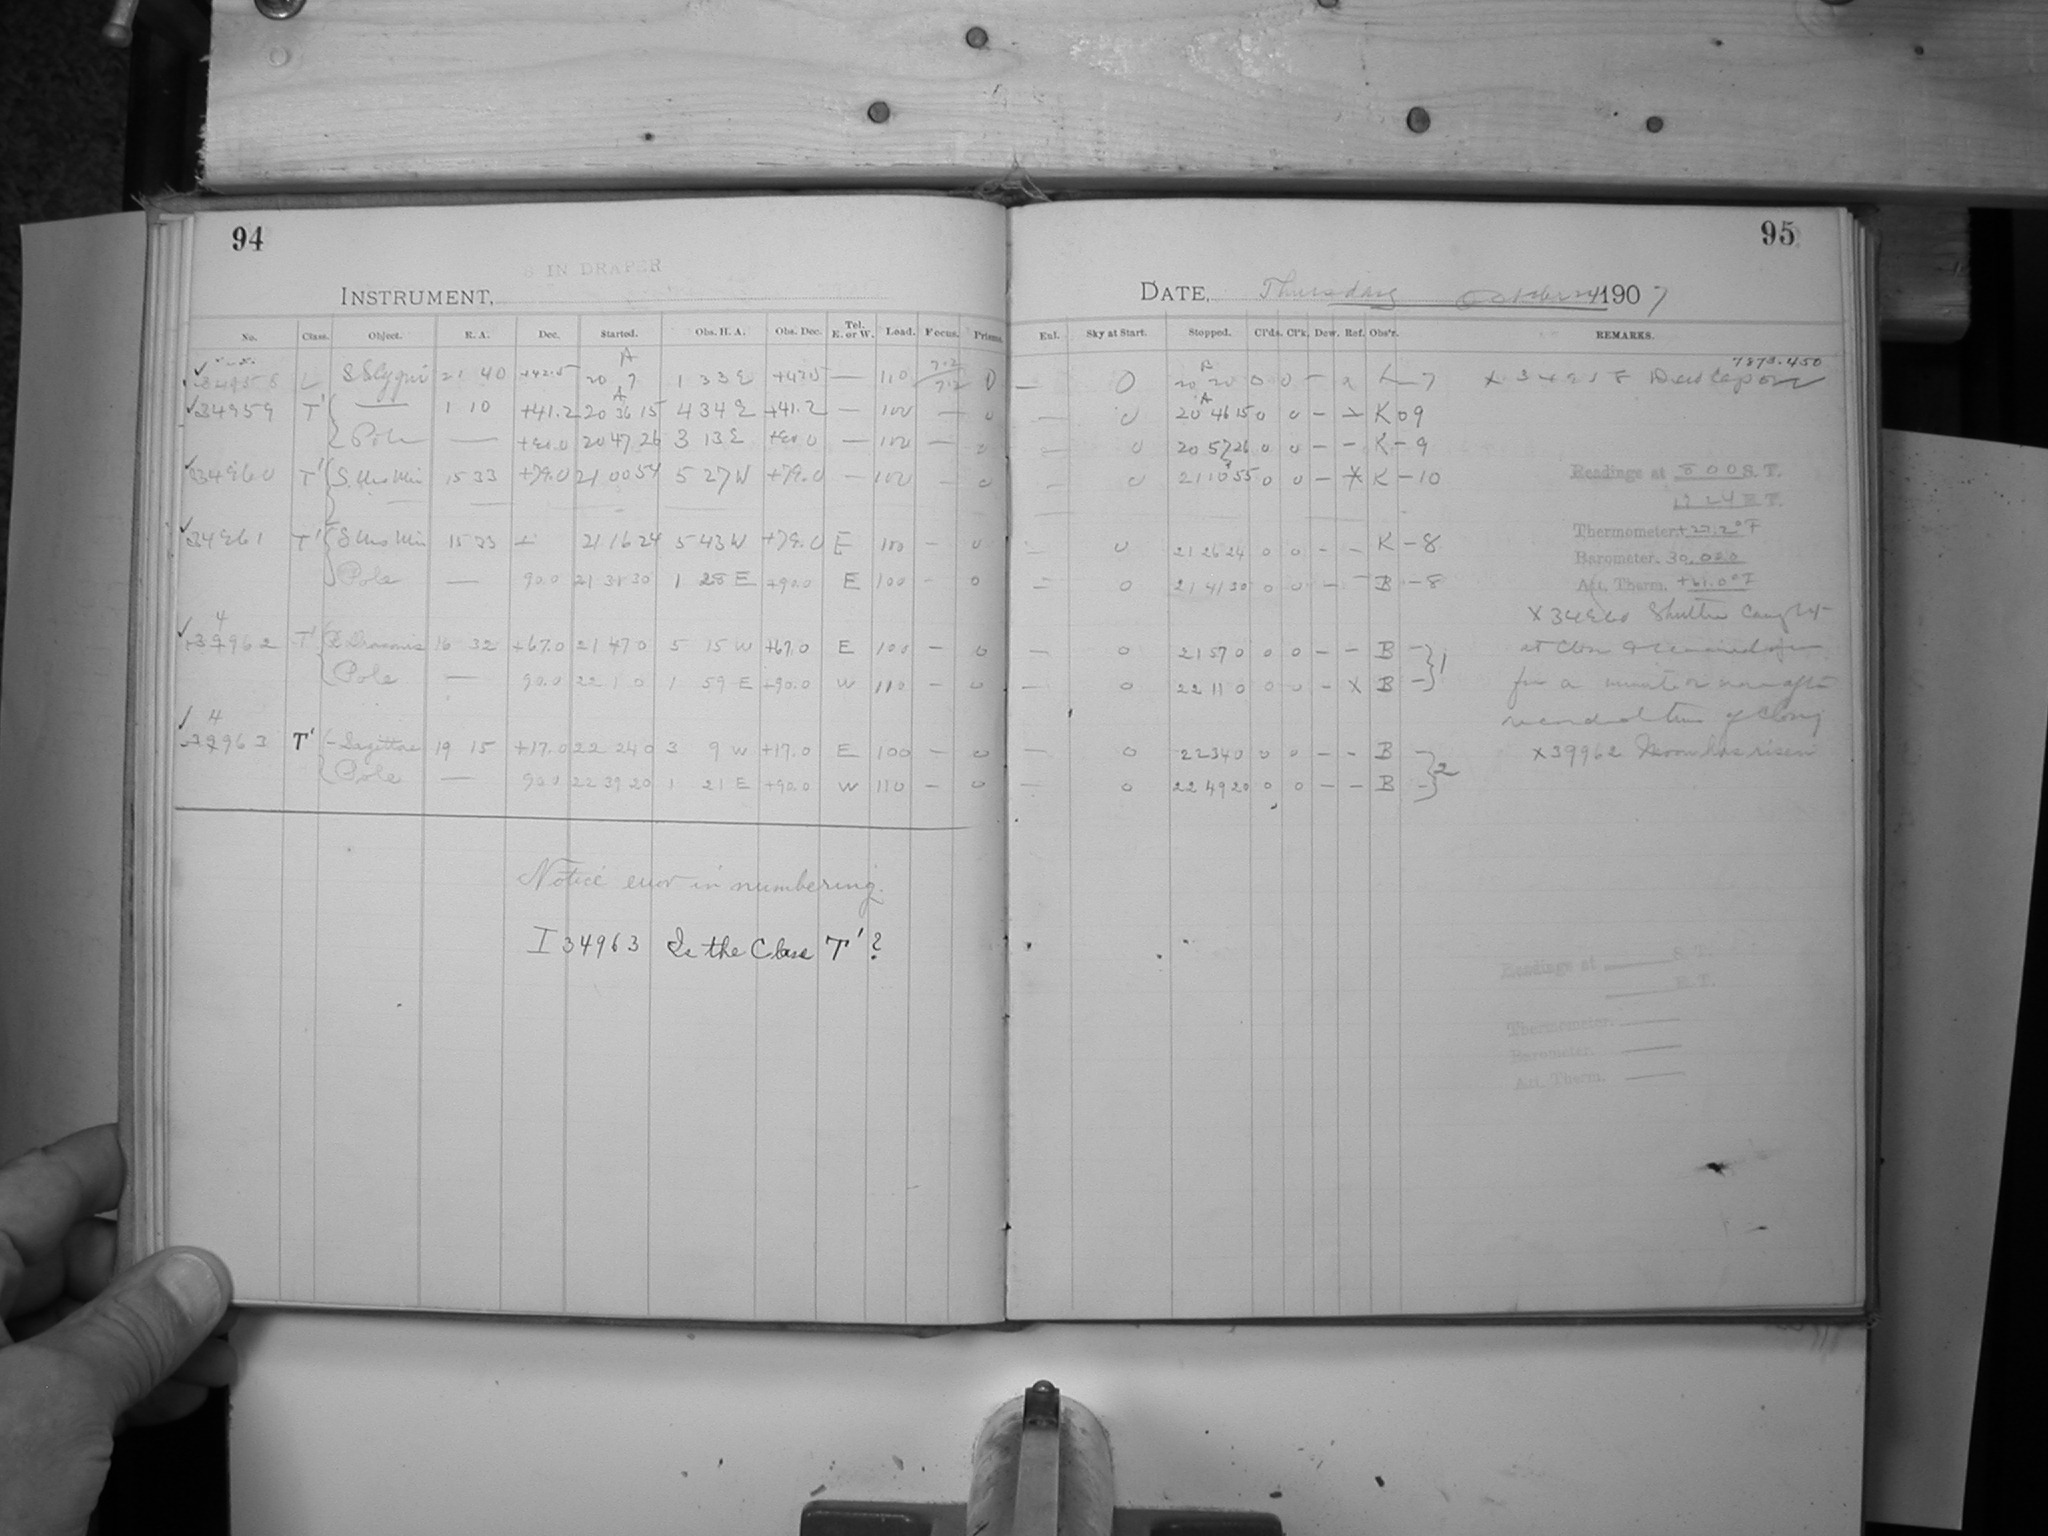 94
8 IN DRAPER
INSTRUMENT,
No. Class. Object. R. A. Dec. Started. Obs. H. A. Obs. Dec. Tel. E. or W. Load. Focus. Prisms.
34958 L S Cygni 21 40 +42.5 20 7 1 33 E +42.5 — 110 7.2 0
34959 T' — 1 10 +41.2 20 36 15 4 34 E +41.2 — 100 — 0
Pole — +90.0 20 47 26 3 13 E +90.0 — 100 — 0
34960 T' S. Urs Min 15 33 +79.0 21 00 54 5 27 W +79.0 — 100 — 0
34961 T' S Urs Min 15 33 + 21 16 24 5 43 W +79.0 E 100 — 0
Pole — 90.0 21 31 30 1 28 E +90.0 E 100 — 0
4
39962 T' R Draconis 16 32 +67.0 21 47 0 5 15 W +67.0 E 100 — 0
Pole — 90.0 22 1 0 1 59 E +90.0 W 110 — 0
4
39963 T' Sagittae 19 15 +17.0 22 24 0 3 9 W +17.0 E 100 — 0
Pole — 90.0 22 39 20 1 21 E +90.0 W 110 — 0
Notice error in numbering.
I 34963 Is the Class T' ?
95
DATE, Thursday October 24 1907
Enl. Sky at Start. Stopped. Cl'ds. Cl'k. Dew. Ref. Obs'r. REMARKS.
7873.450
— 0 20 20 0 0 — x L — 7 x 34958 Dew Cap on
— 0 20 46 15 0 0 — x K 0 9
— 0 20 57 26 0 0 — — K — 9
— 0 21 10 55 0 0 — x K — 10
Readings at 8 00 S. T.
E. T.
— 0 21 26 24 0 0 — — K — 8
Thermometer. +27.2° F
Barometer. 30.020
— 0 21 41 30 0 0 — — B — 8
Att. Therm. +61.0° F
x 34960 Shutter caught
— 0 21 57 0 0 0 — — B — 1
at close & remained open
— 0 22 11 0 0 0 — x B —
for a minute or more after
recorded time of closing
— 0 22 34 0 0 0 — — B — 2
x 39962 Moon has risen
— 0 22 49 20 0 0 — — B —
Readings at S. T.
E. T.
Thermometer.
Barometer.
Att. Therm.